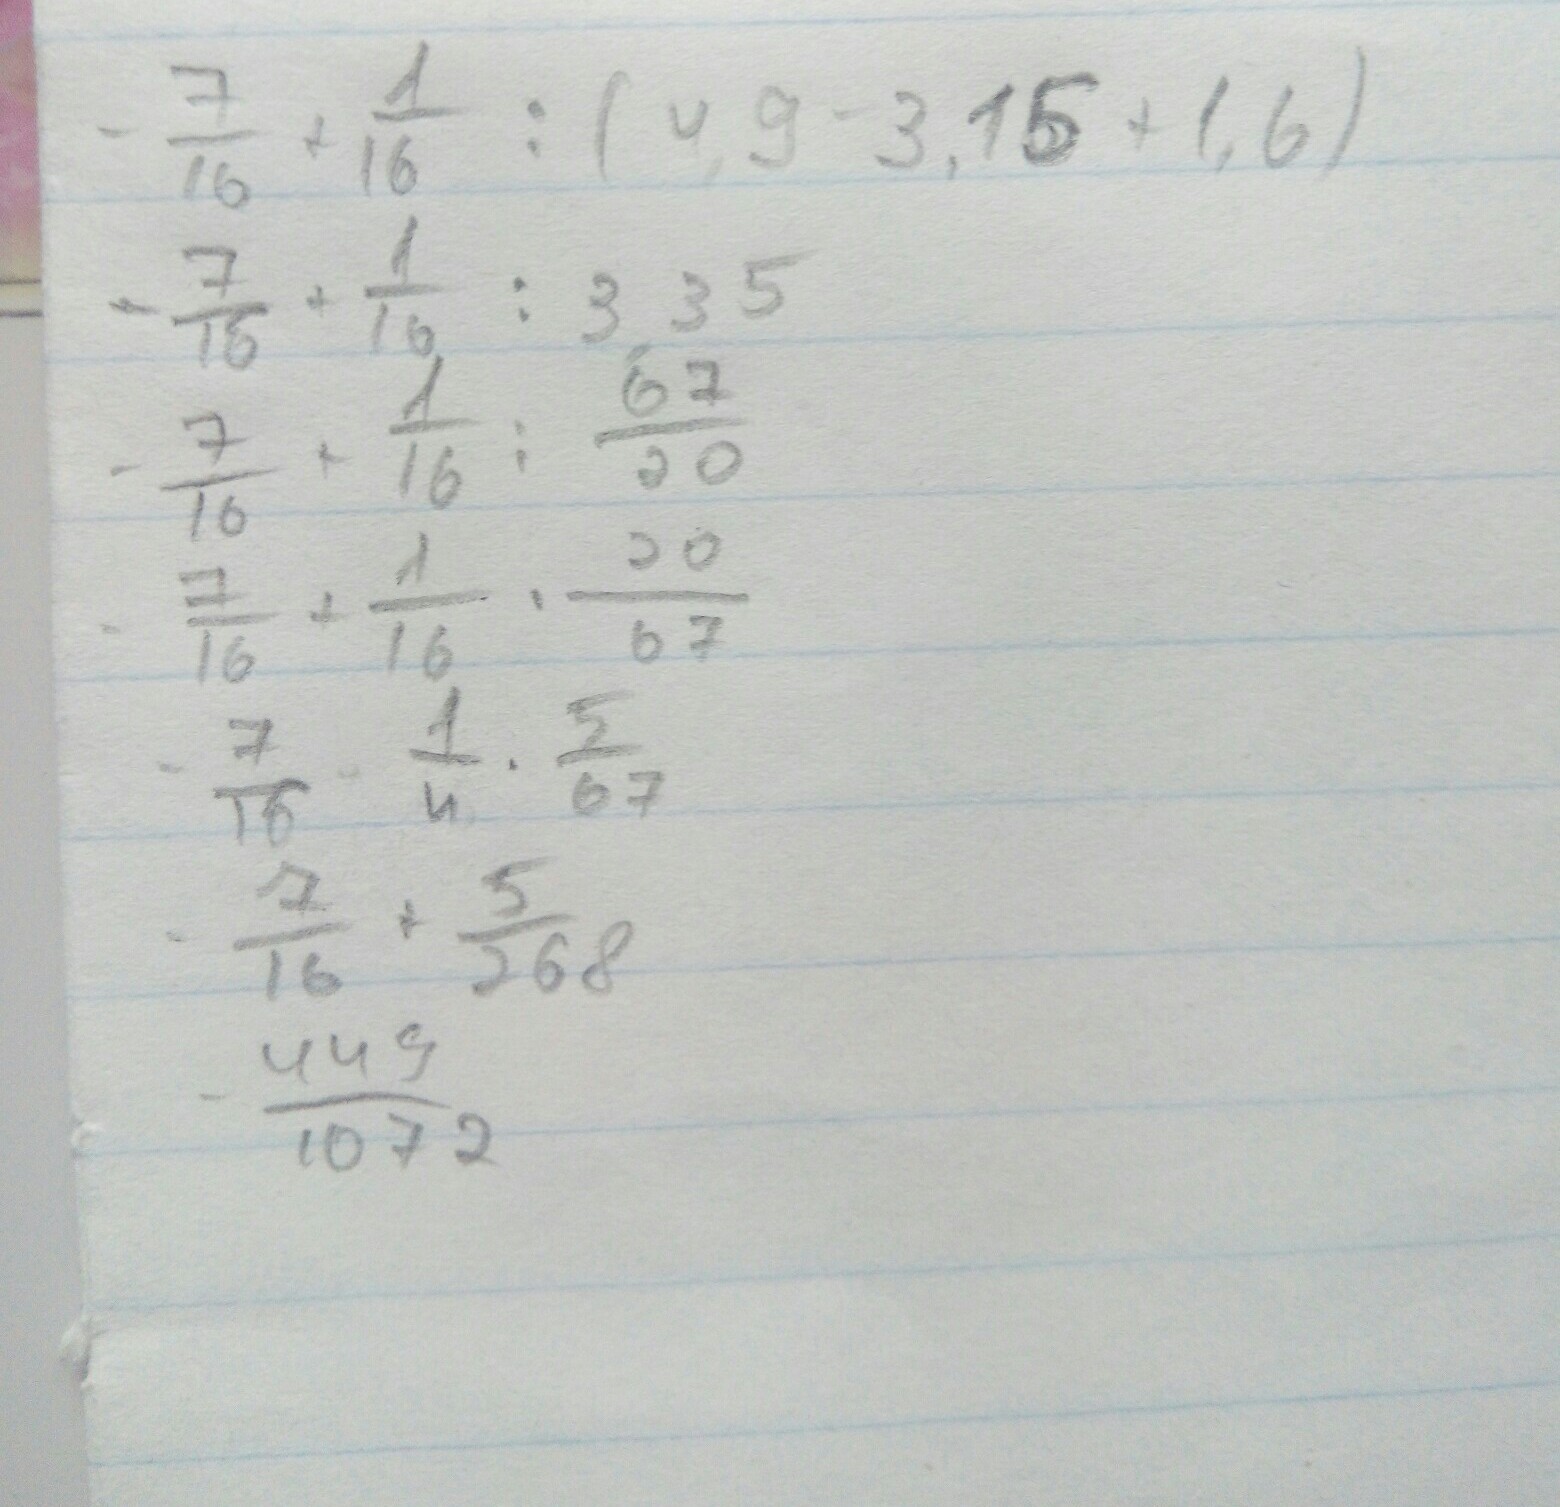 - 7/16 + 1/16 : (4,9 - 3,15 + 1,6)
- 7/16 + 1/16 : 3,35
- 7/16 + 1/16 : 67/20
- 7/16 + 1/16 · 20/67
- 7/16 - 1/4 · 5/67
- 7/16 + 5/268
- 449/1072